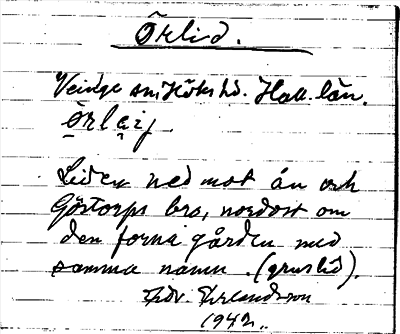 Örlid.
Veinge sn, Höks hd. Hall. län.
Liden ned mot ån och
Göstorps bro, nordost om
den forna gården med
samma namn. (gruslid).
Edv. Erlandsson
1942.